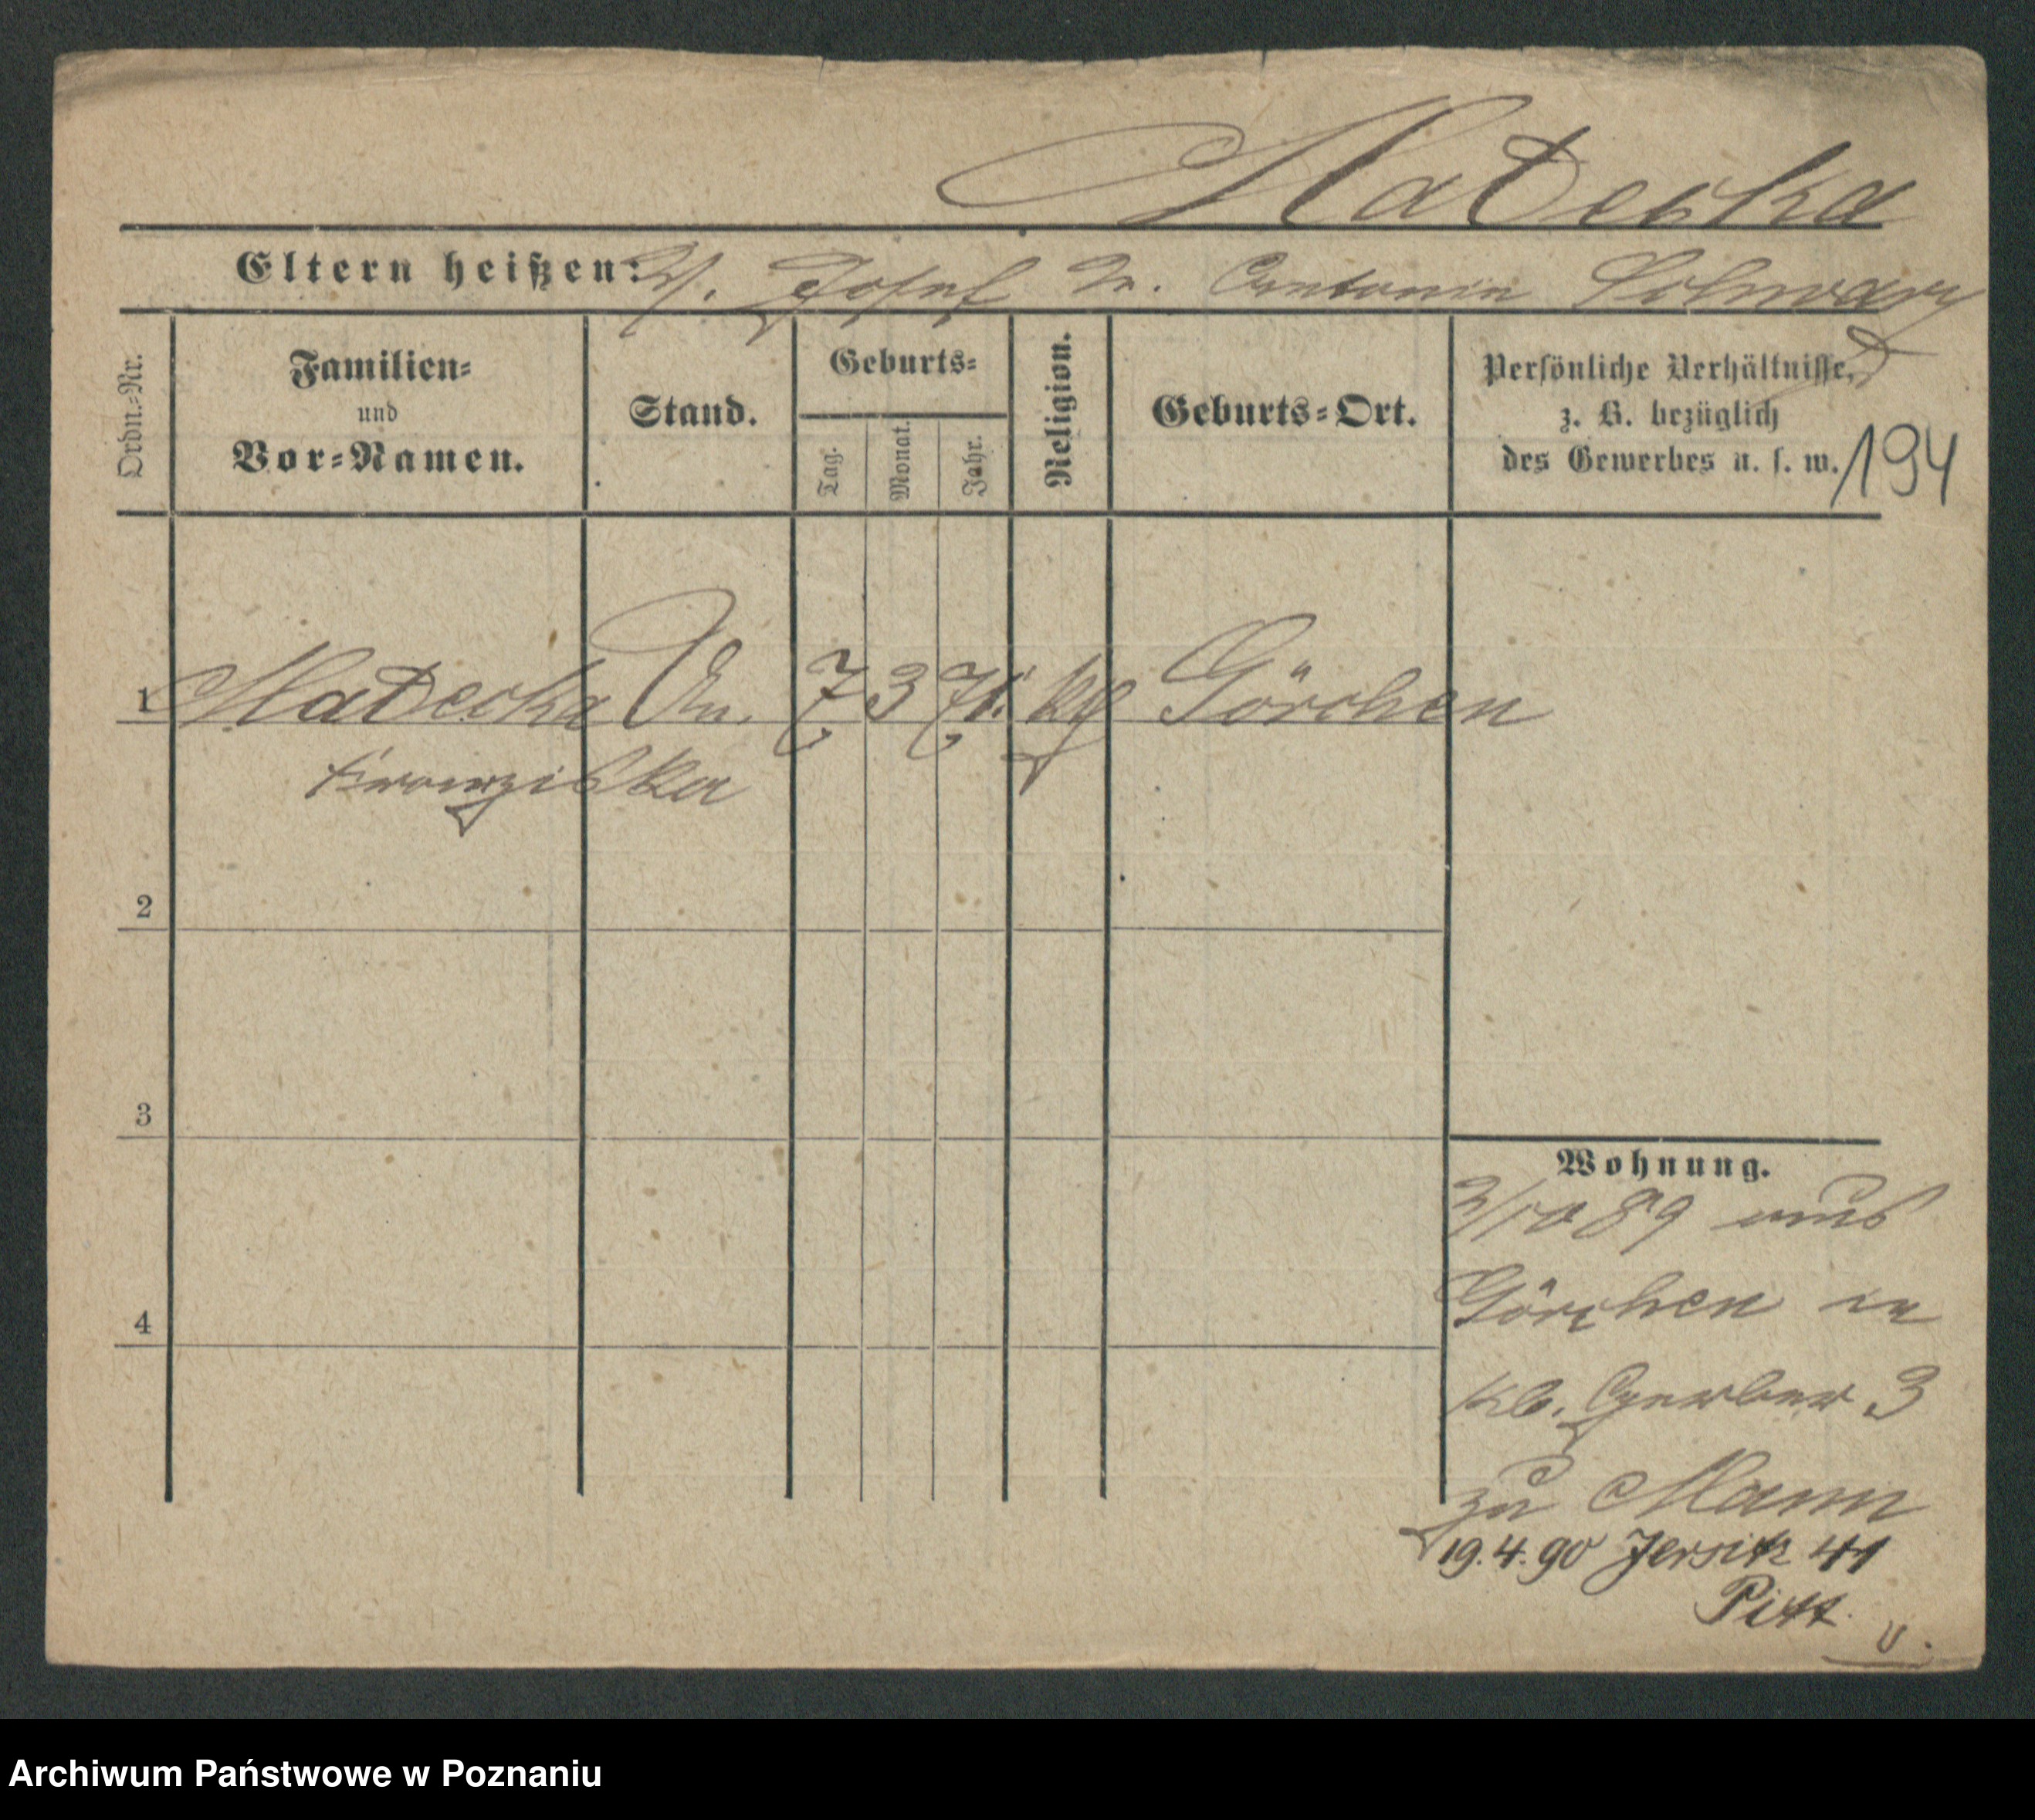 Madecka
Eltern heißen: V. Josef M. Antonin Schwarz
Ordn.-Nr.
Familien-
und
Vor-Namen.
Stand.
Geburts-
Tag.
Monat.
Jahr.
Religion.
Geburts-Ort.
Persönliche Verhältnisse,
z. B. bezüglich
des Gewerbes u. s. w.
194
1 Madecka 7 3 71. kth Görchen
Franziska
2
3
4
Wohnung.
2/10 89 aus
Görchen in
Kl. Gerber. 3
zu Mann
19.4.90 Jersitz 41
Pitt.
v.
Archiwum Państwowe w Poznaniu